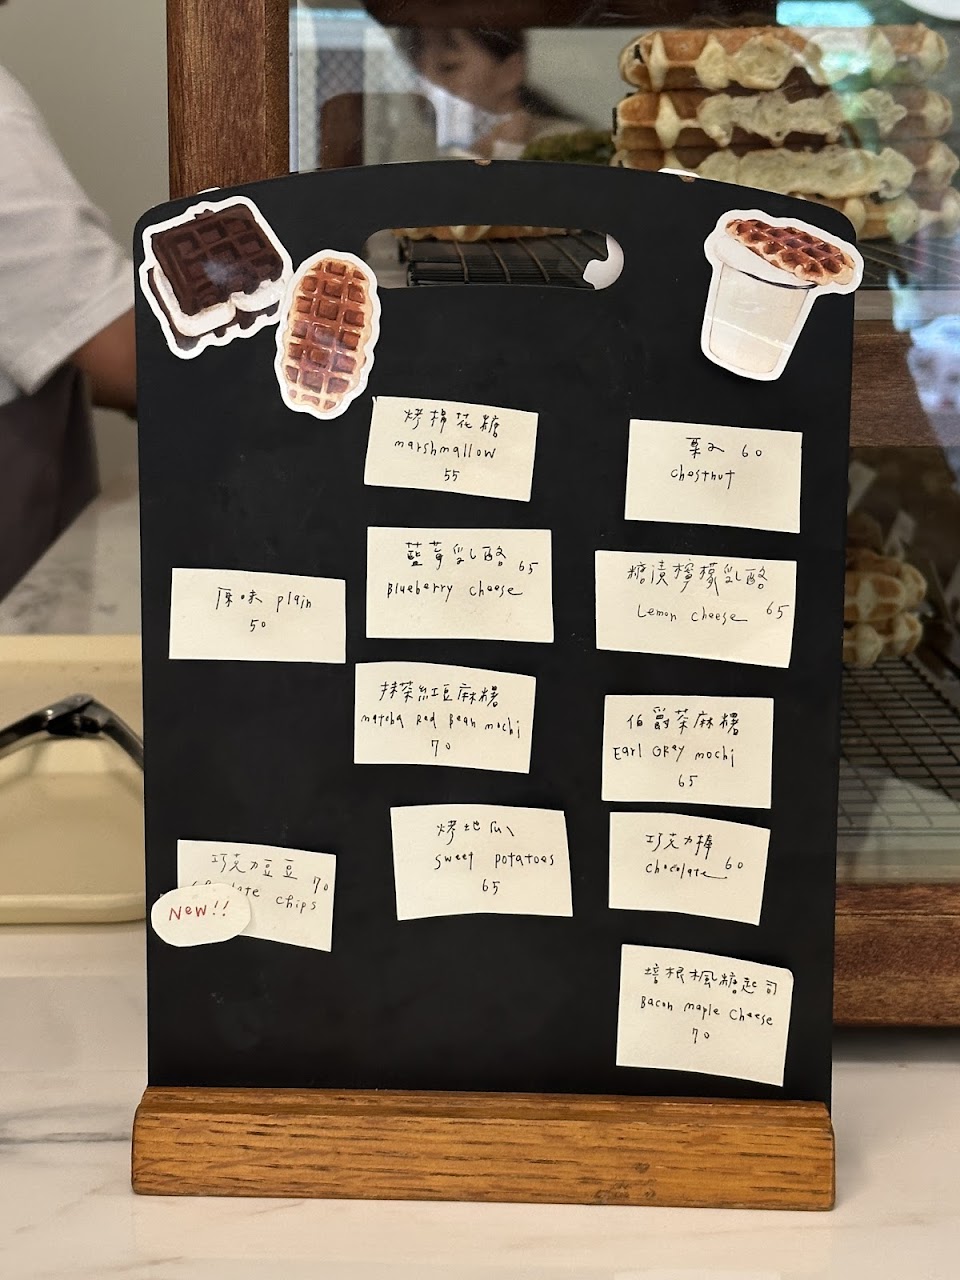 烤棉花糖
marshmallow
55
栗子 60
chestnut
藍莓乳酪 65
Blueberry cheese
糖漬檸檬乳酪
Lemon cheese 65
原味 plain
50
抹茶紅豆麻糬
matcha Red Bean mochi
70
伯爵茶麻糬
Earl GRay mochi
65
烤地瓜
sweet potatoes
65
巧克力棒
chocolate 60
巧克力豆豆 70
chips
New!!
培根楓糖起司
Bacon maple cheese
70